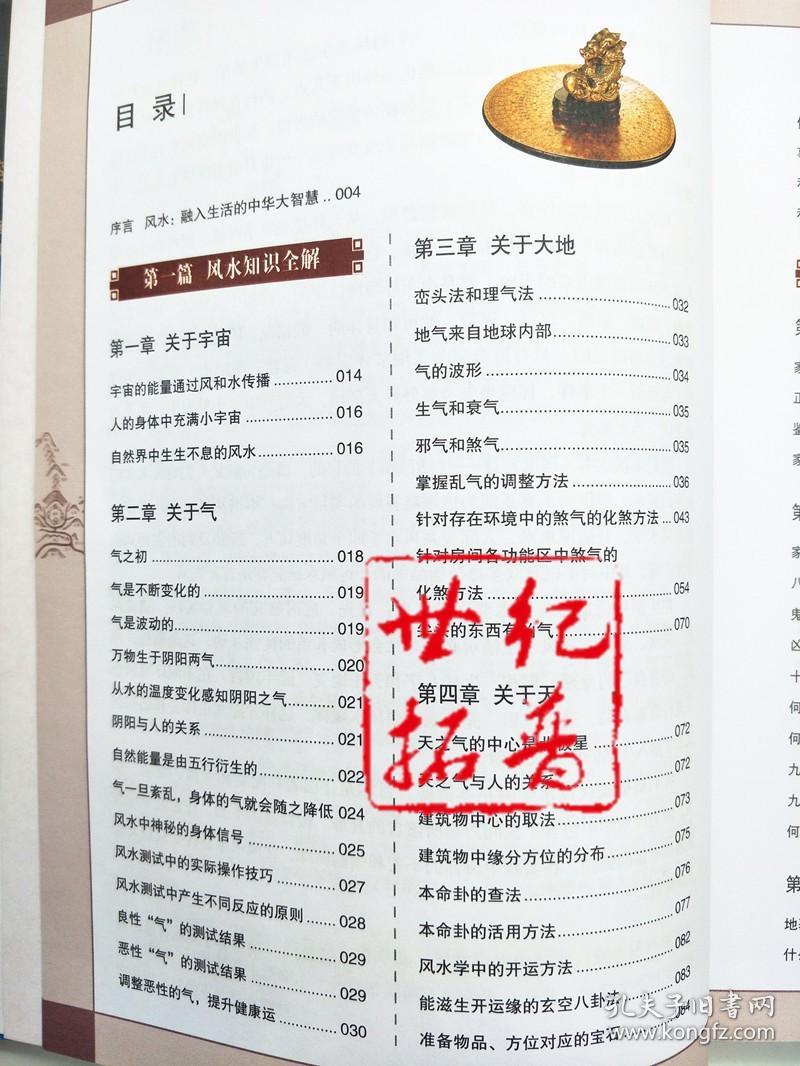 目录
序言 风水：融入生活的中华大智慧 .. 004
第一篇 风水知识全解
第一章 关于宇宙
宇宙的能量通过风和水传播 ............ 014
人的身体中充满小宇宙 ............ 016
自然界中生生不息的风水 ............ 016
第二章 关于气
气之初 ............ 018
气是不断变化的 ............ 019
气是波动的 ............ 019
万物生于阴阳两气 ............ 020
从水的温度变化感知阴阳之气 ........ 021
阴阳与人的关系 ............ 021
自然能量是由五行衍生的 ............ 022
气一旦紊乱，身体的气就会随之降低 024
风水中神秘的身体信号 ............ 025
风水测试中的实际操作技巧 ............ 027
风水测试中产生不同反应的原则 ........ 028
良性“气”的测试结果 ............ 029
恶性“气”的测试结果 ............ 029
调整恶性的气，提升健康运 ............ 030
第三章 关于大地
峦头法和理气法 ............ 032
地气来自地球内部 ............ 033
气的波形 ............ 034
生气和衰气 ............ 035
邪气和煞气 ............ 035
掌握乱气的调整方法 ............ 036
针对存在环境中的煞气的化煞方法 ... 043
针对房间各功能区中煞气的
化煞方法 ............ 054
尖头的东西有凶气 ............ 070
第四章 关于天
天之气的中心是北极星 ............ 072
天之气与人的关系 ............ 072
建筑物中心的取法 ............ 073
建筑物中缘分方位的分布 ............ 075
本命卦的查法 ............ 076
本命卦的活用方法 ............ 077
风水学中的开运方法 ............ 082
能滋生开运缘的玄空八卦法 ........ 083
准备物品、方位对应的宝石 ........ 084
世纪
拓普
孔夫子旧书网
www.kongfz.com